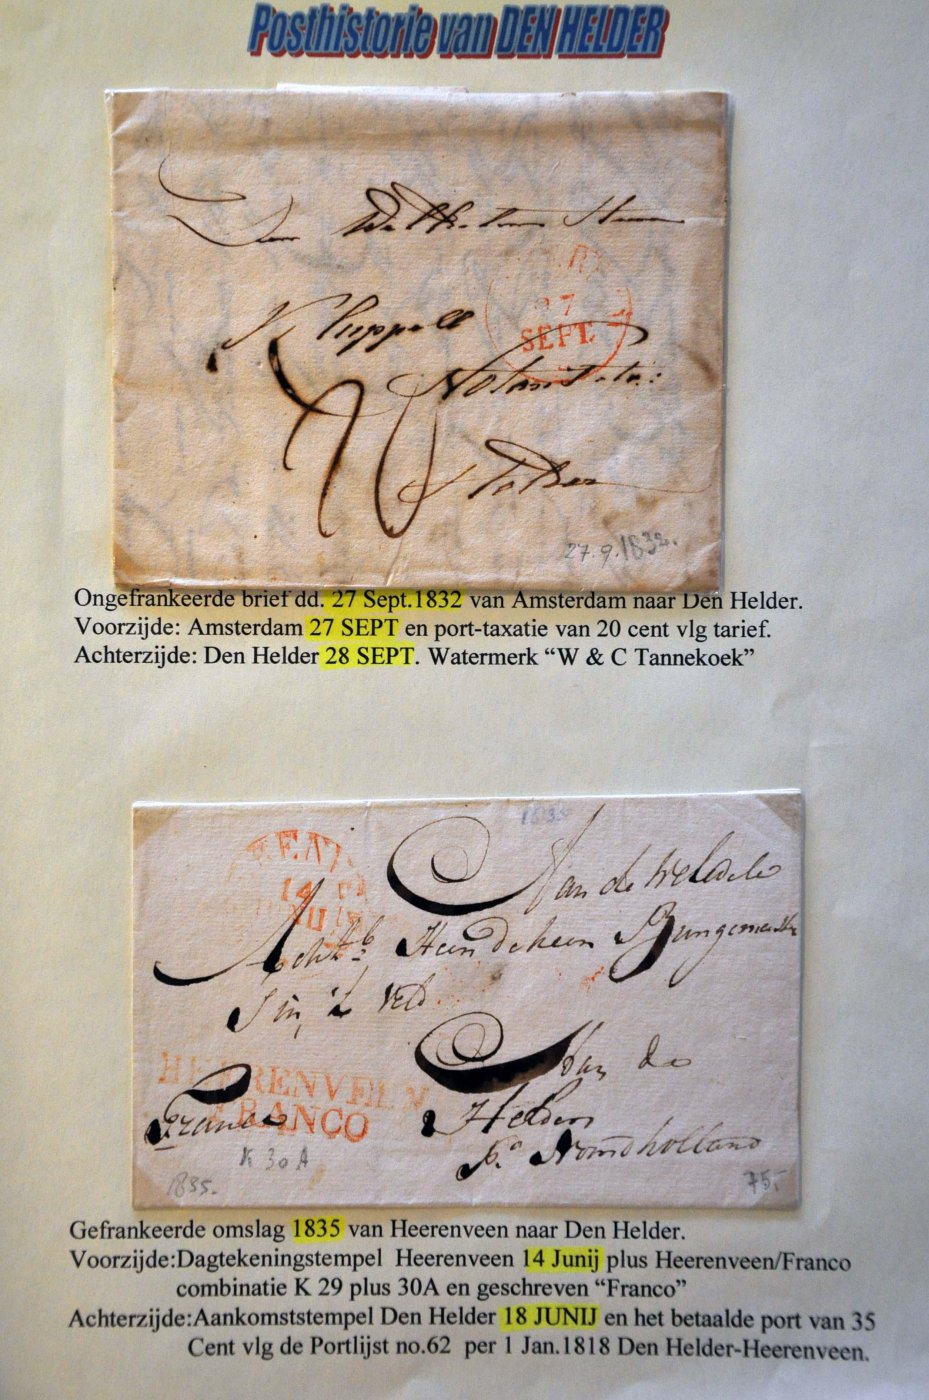 Posthistorie van DEN HELDER
Den
Heer
Kluppell
27
SEPT
Notaris te:
20
Helder
27.9.1832.
Ongefrankeerde brief dd. 27 Sept.1832 van Amsterdam naar Den Helder.
Voorzijde: Amsterdam 27 SEPT en port-taxatie van 20 cent vlg tarief.
Achterzijde: Den Helder 28 SEPT. Watermerk “W & C Tannekoek”
1835
Aan de WelEdele
14
Achtb: Heer de heer Burgemeester
in 't Veld
Aan de
HEERENVEEN
Helder
Franco
FRANCO
Pr Noordholland
K 30 A
1835.
75.-
Gefrankeerde omslag 1835 van Heerenveen naar Den Helder.
Voorzijde:Dagtekeningstempel Heerenveen 14 Junij plus Heerenveen/Franco
combinatie K 29 plus 30A en geschreven “Franco”
Achterzijde:Aankomststempel Den Helder 18 JUNIJ en het betaalde port van 35
Cent vlg de Portlijst no.62 per 1 Jan.1818 Den Helder-Heerenveen.